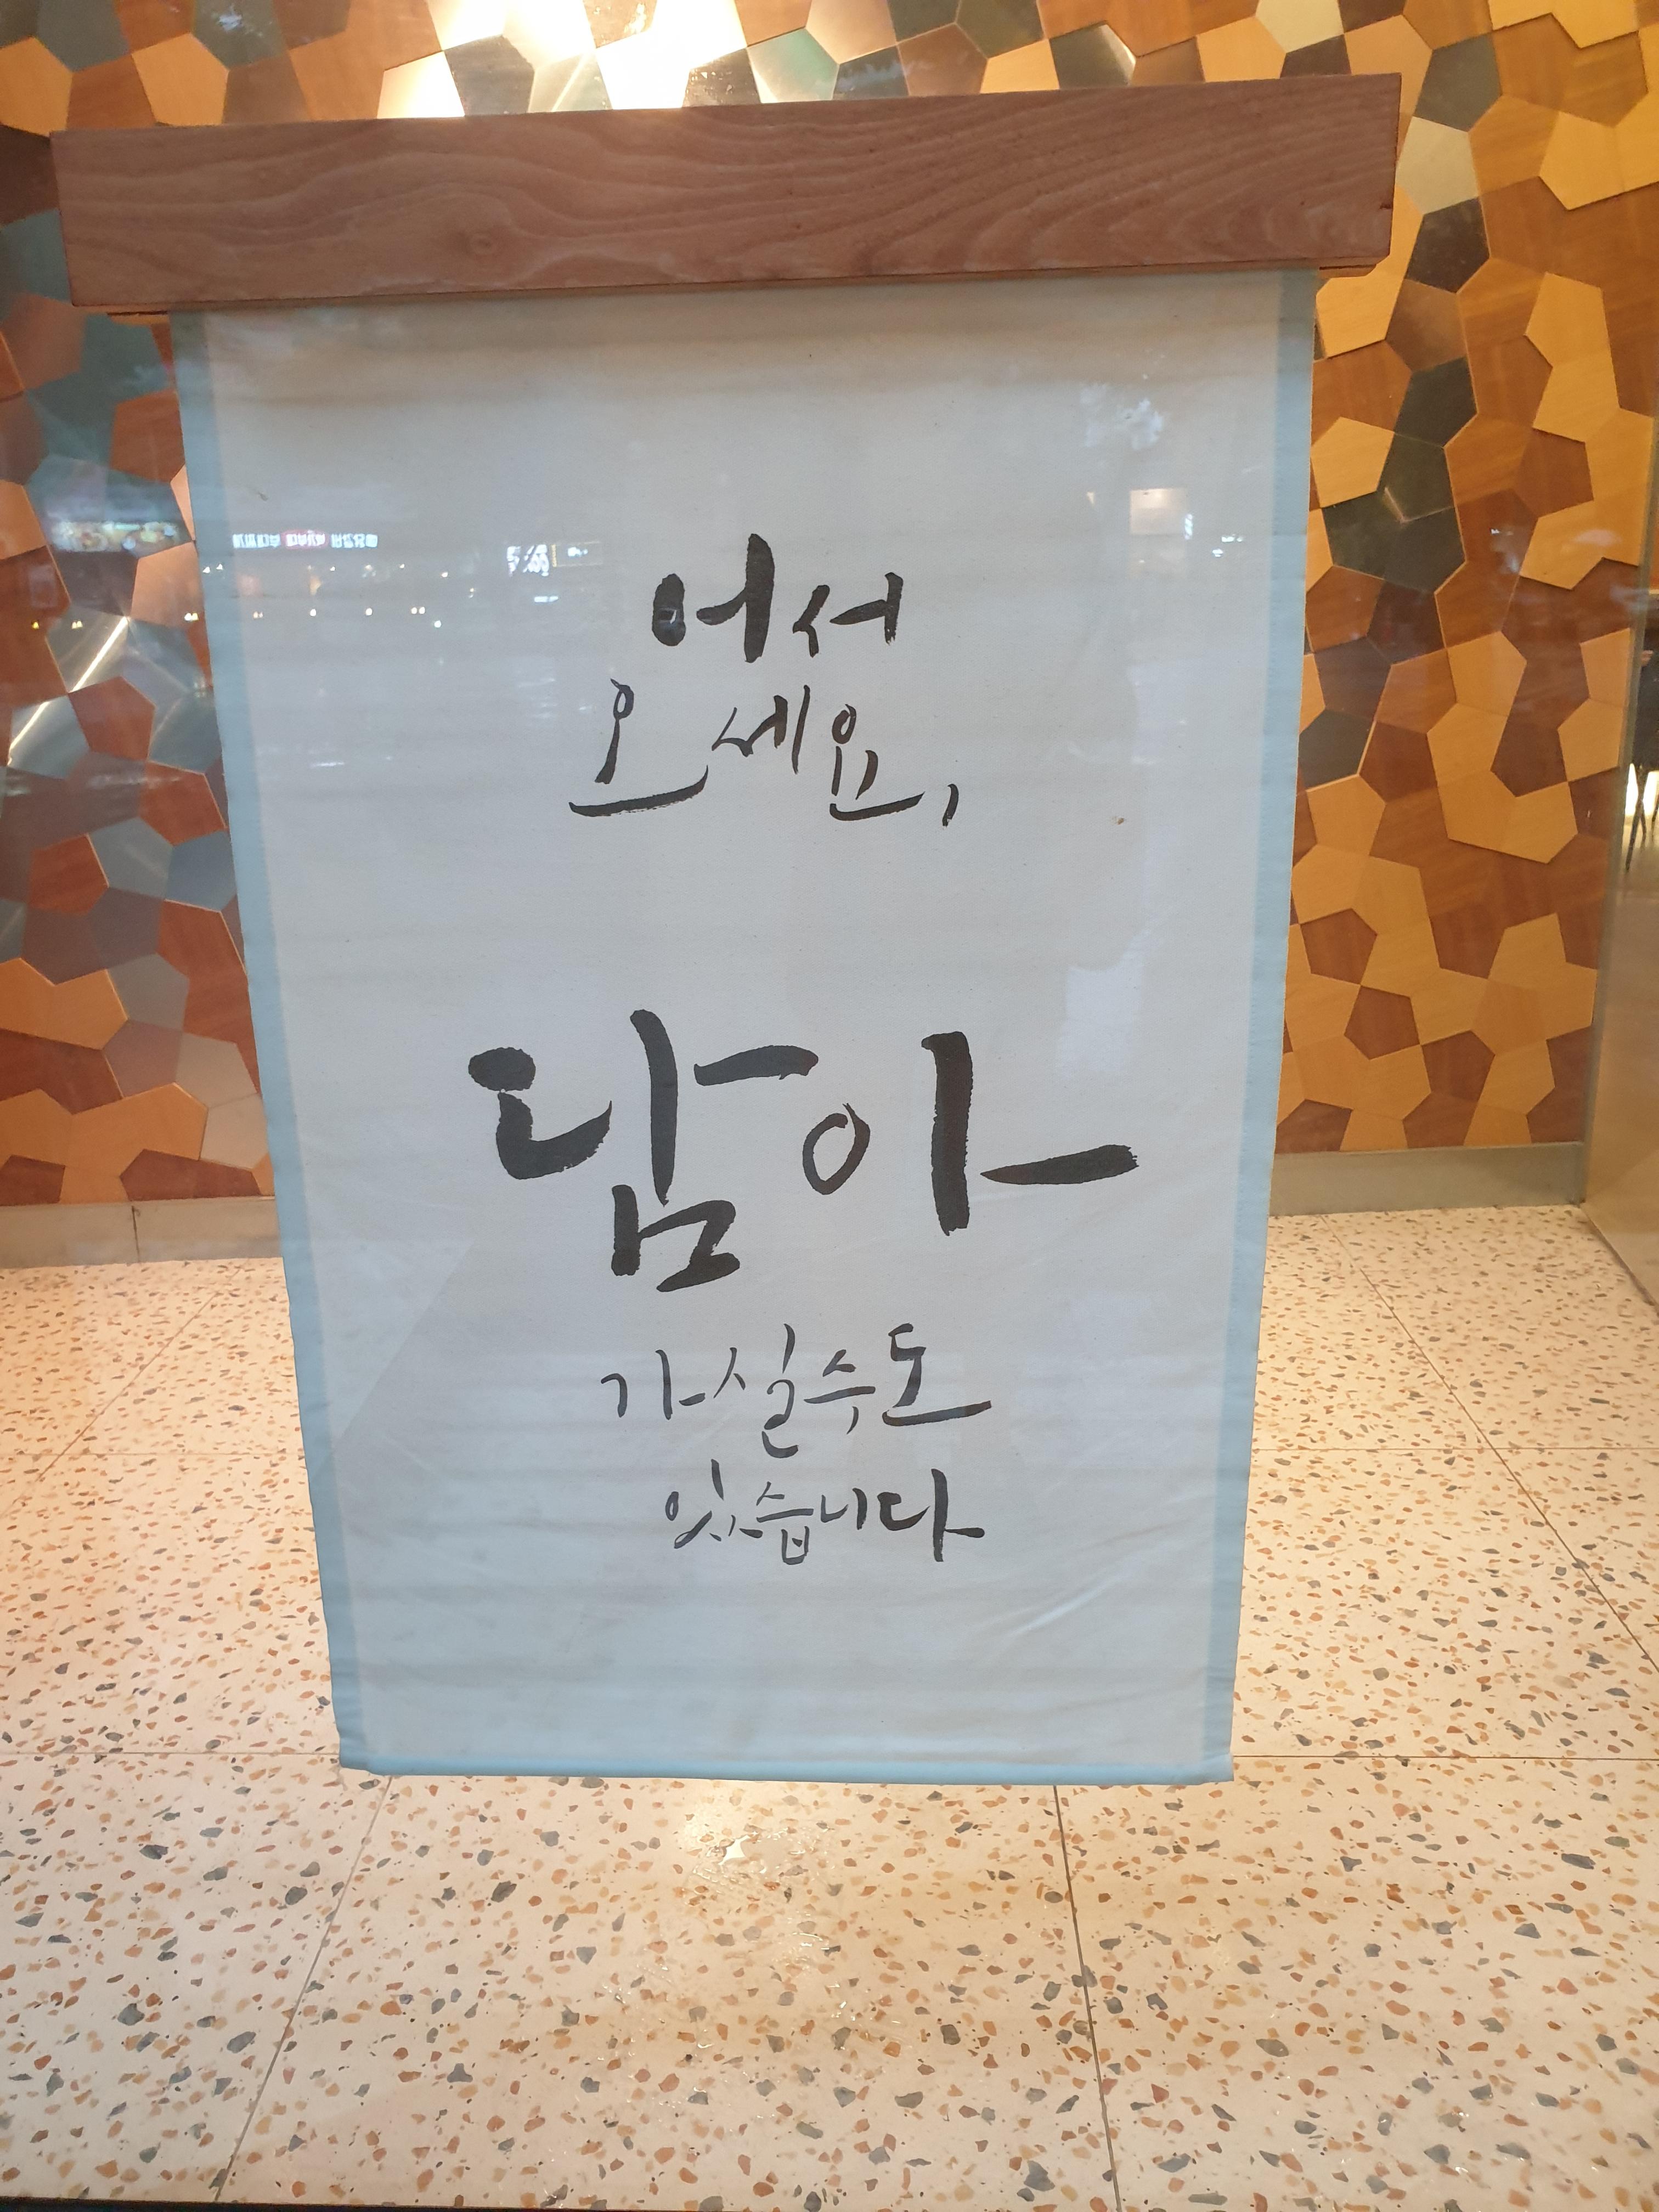 어서
오세요,
담아
가실수도
있습니다